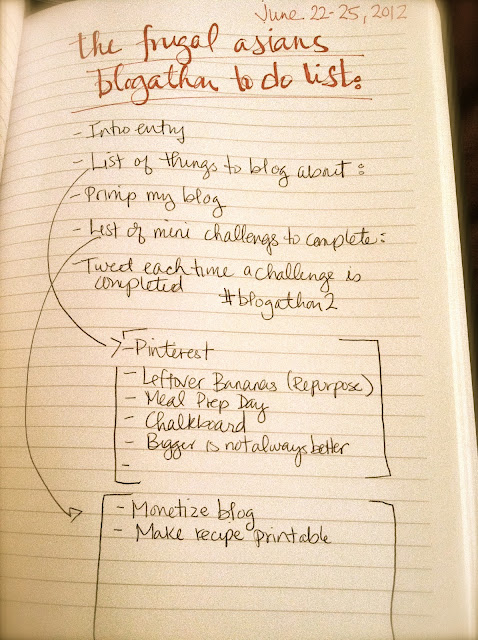 June 22-25, 2012
the frugal asians
blogathon to do list:
- Intro entry
- List of things to blog about:
- Primp my blog
- List of mini challengs to complete:
- Tweet each time a challenge is
completed #blogathon2
- Pinterest
- Leftover Bananas (Repurpose)
- Meal Prep Day
- Chalkboard
- Bigger is not always better
-
- Monetize blog
- Make recipe printable